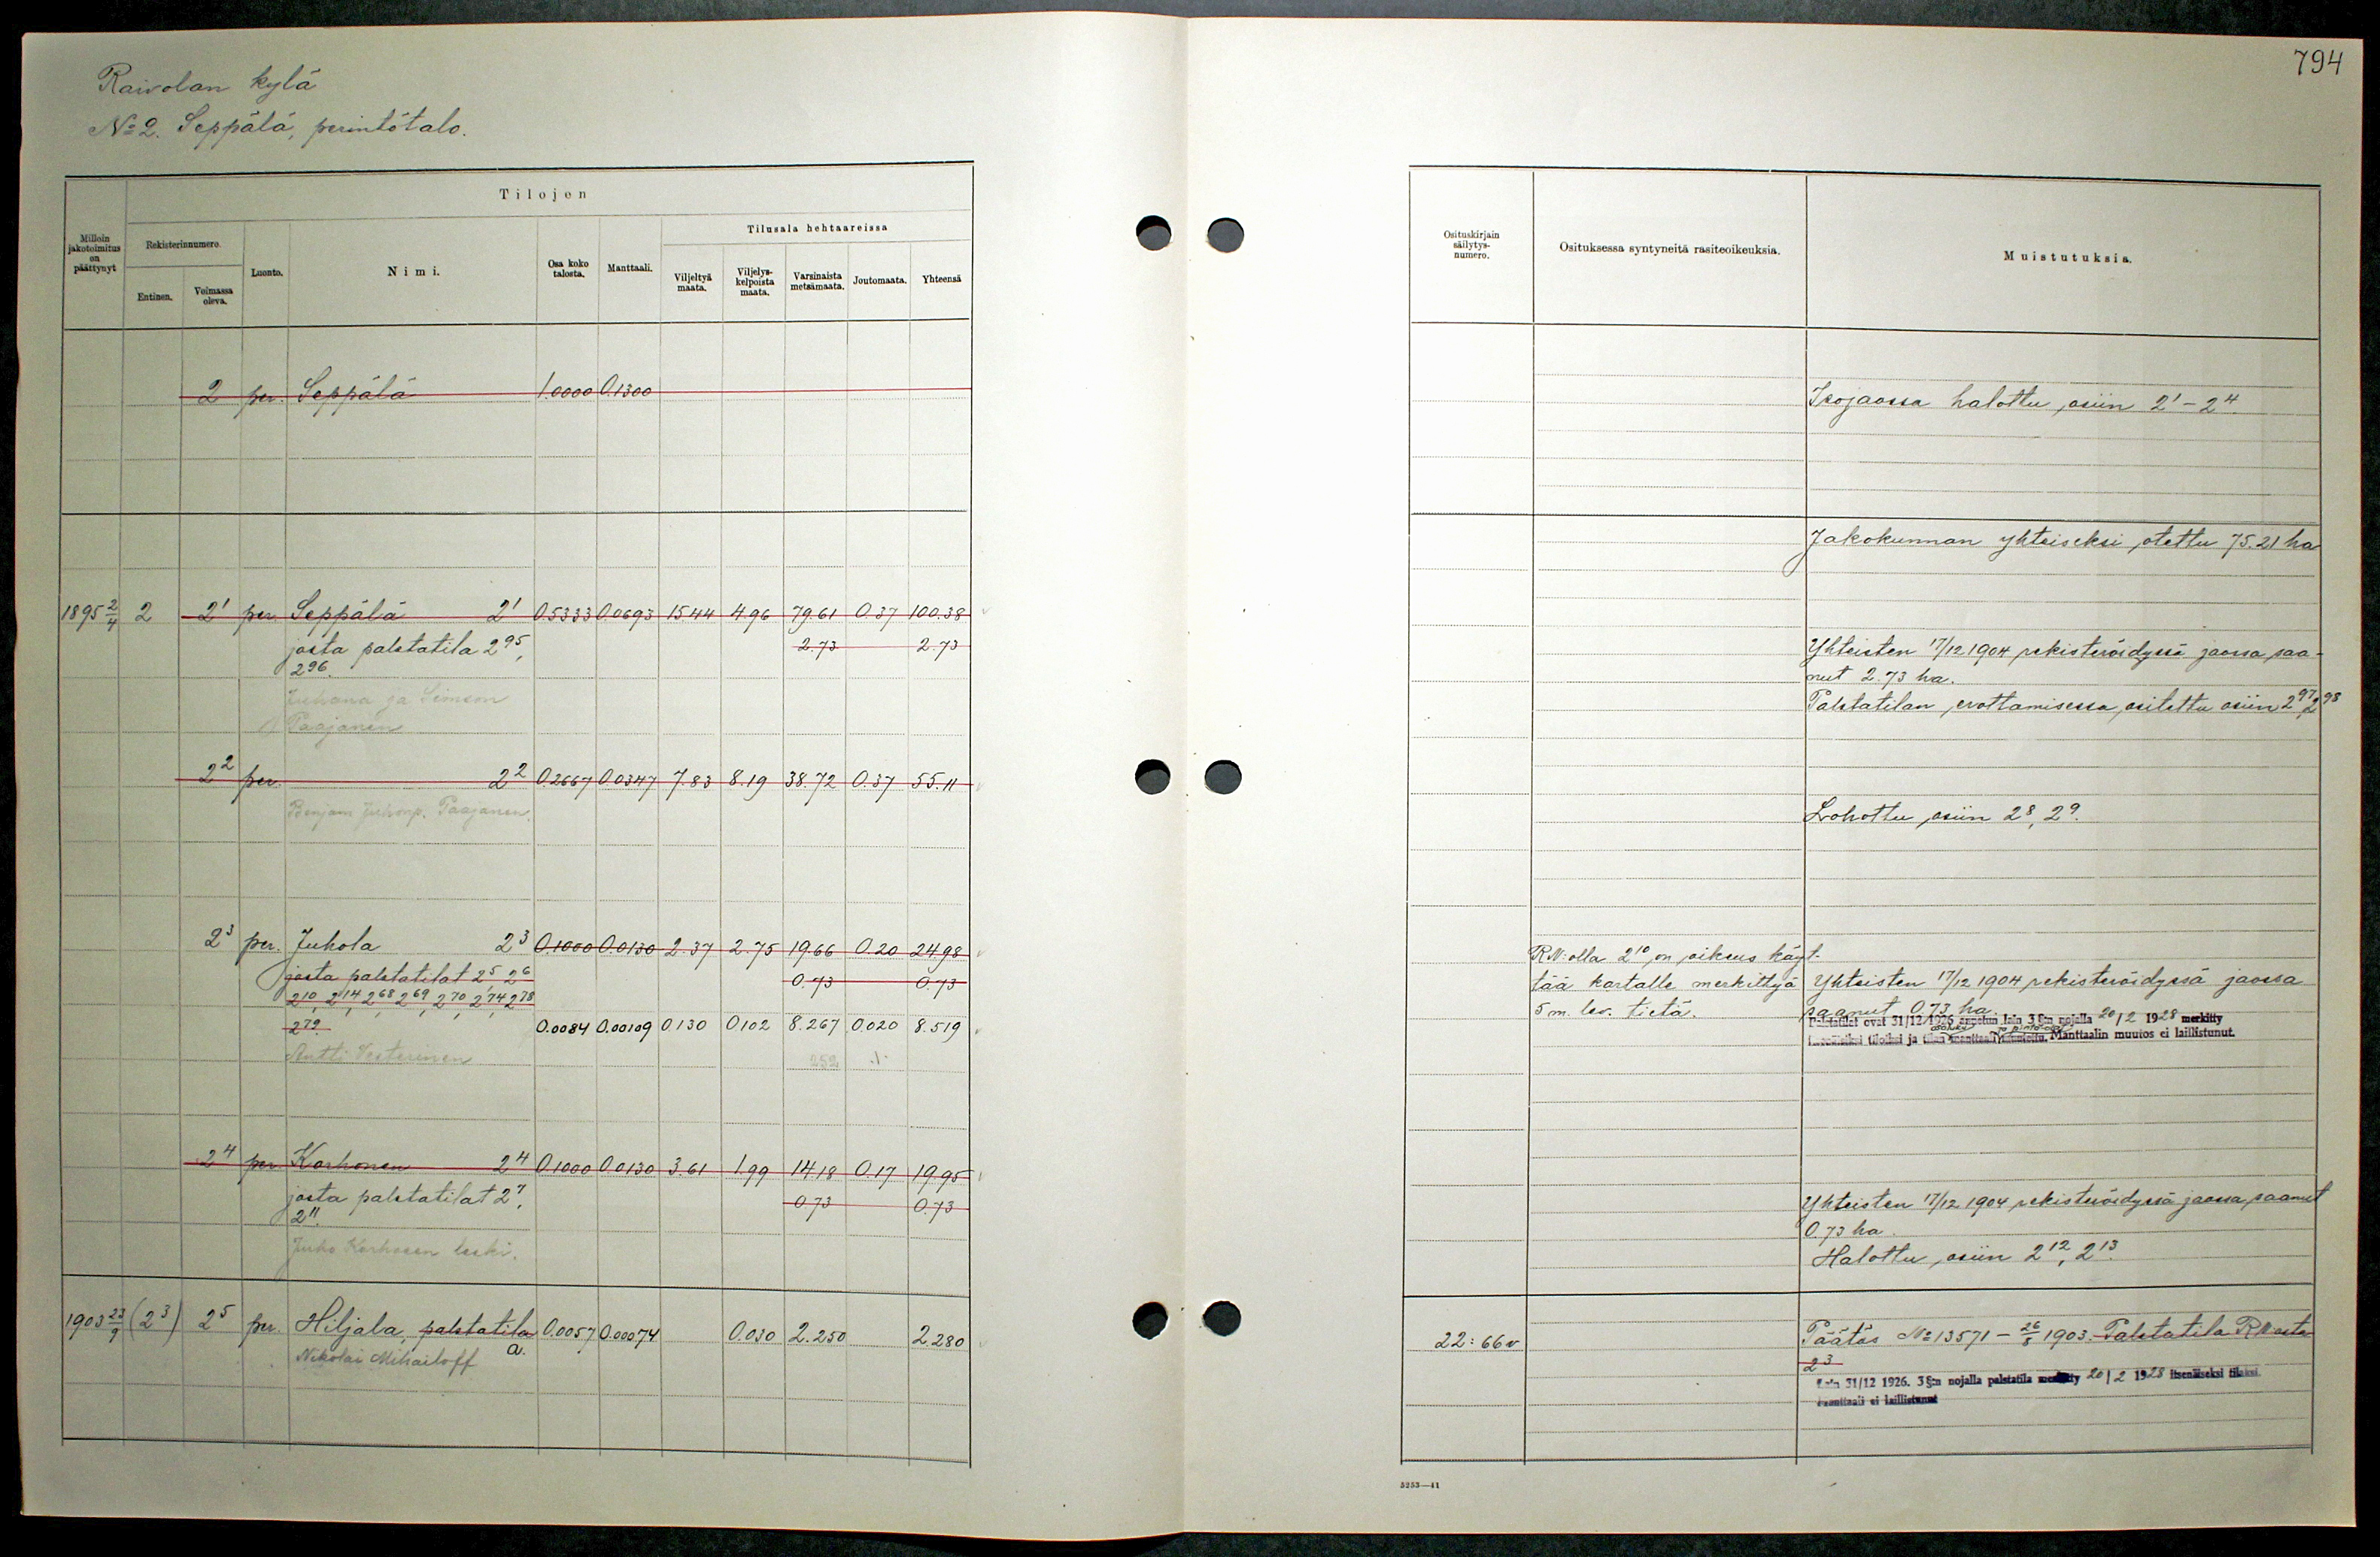 794
Raivolan kylä
№ 2. Seppälä, perintötalo.
Tilojen
Milloin jakotoimitus on päättynyt
Rekisterinnumero.
Entinen.
Voimassa oleva.
Luonto.
Nimi.
Osa koko talosta.
Manttaali.
Tilusala hehtaareissa
Viljeltyä maata.
Viljelys-kelpoista maata.
Varsinaista metsämaata.
Joutomaata.
Yhteensä
2 per. Seppälä 1.0000 0.1300
1895 2/4 2 2¹ per. Seppälä 2¹ 0.5333 0.0693 15.44 4.96 79.61 0.37 100.38
josta palstatila 2⁹⁵, 2.73 2.73
2⁹⁶.
Juhana ja Simson
Paajanen
2² per. 2² 0.2667 0.0347 7.83 8.19 38.72 0.37 55.11
Benjam Juhonp. Paajanen.
2³ per. Juhola 2³ 0.1000 0.0130 2.37 2.75 19.66 0.20 24.98
josta palstatilat 2⁵, 2⁶ 0.73 0.73
2¹⁰, 2¹⁴, 2⁶⁸, 2⁶⁹, 2⁷⁰, 2⁷⁴, 2⁷⁸
2⁷⁹. 0.0084 0.00109 0.130 0.102 8.267 0.020 8.519
Antti Vesterinen 252
2⁴ per. Korhonen 2⁴ 0.1000 0.0130 3.61 1.99 14.18 0.17 19.95
josta palstatilat 2⁷, 0.73 0.73
2¹¹.
Juho Korhosen leski.
1903 23/9 (2³) 2⁵ per. Hiljala, palstatila 0.0057 0.00074 0.030 2.250 2.280
Nikolai Mihailoff a.
Osituskirjain säilytys-numero.
Osituksessa syntyneitä rasiteoikeuksia.
Muistutuksia.
Isojaossa halottu osiin 2¹ – 2⁴
Jakokunnan yhteiseksi otettu 75.21 ha
Yhteisten 17/12 1904 rekisteröidyssä jaossa saa-
nut 2.73 ha.
Palstatilan erottamisessa ositettu osiin 2⁹⁷, 2⁹⁸
Lohottu osiin 2⁸, 2⁹.
RN:olla 2¹⁰ on oikeus käyt-
tää kartalle merkittyä
5 m. lev. tietä.
Yhteisten 17/12 1904 rekisteröidyssä jaossa
saanut 0.73 ha.
Palstatilat ovat 31/12 1926 annetun lain 3 §:n nojalla 20/2 1928 merkitty
itsenäisiksi tiloiksi ja tilan manttaali Manttaalin muutos ei laillistunut.
Yhteisten 17/12 1904 rekisteröidyssä jaossa saanut
0.73 ha.
Halottu osiin 2¹², 2¹³.
22: 66 v
Päätös № 13571 – 26/8 1903. Palstatila RN:osta
2³
Lain 31/12 1926. 3 §:n nojalla palstatila merkitty 20/2 1928 itsenäiseksi tilaksi.
Manttaali ei laillistunut
5253—41